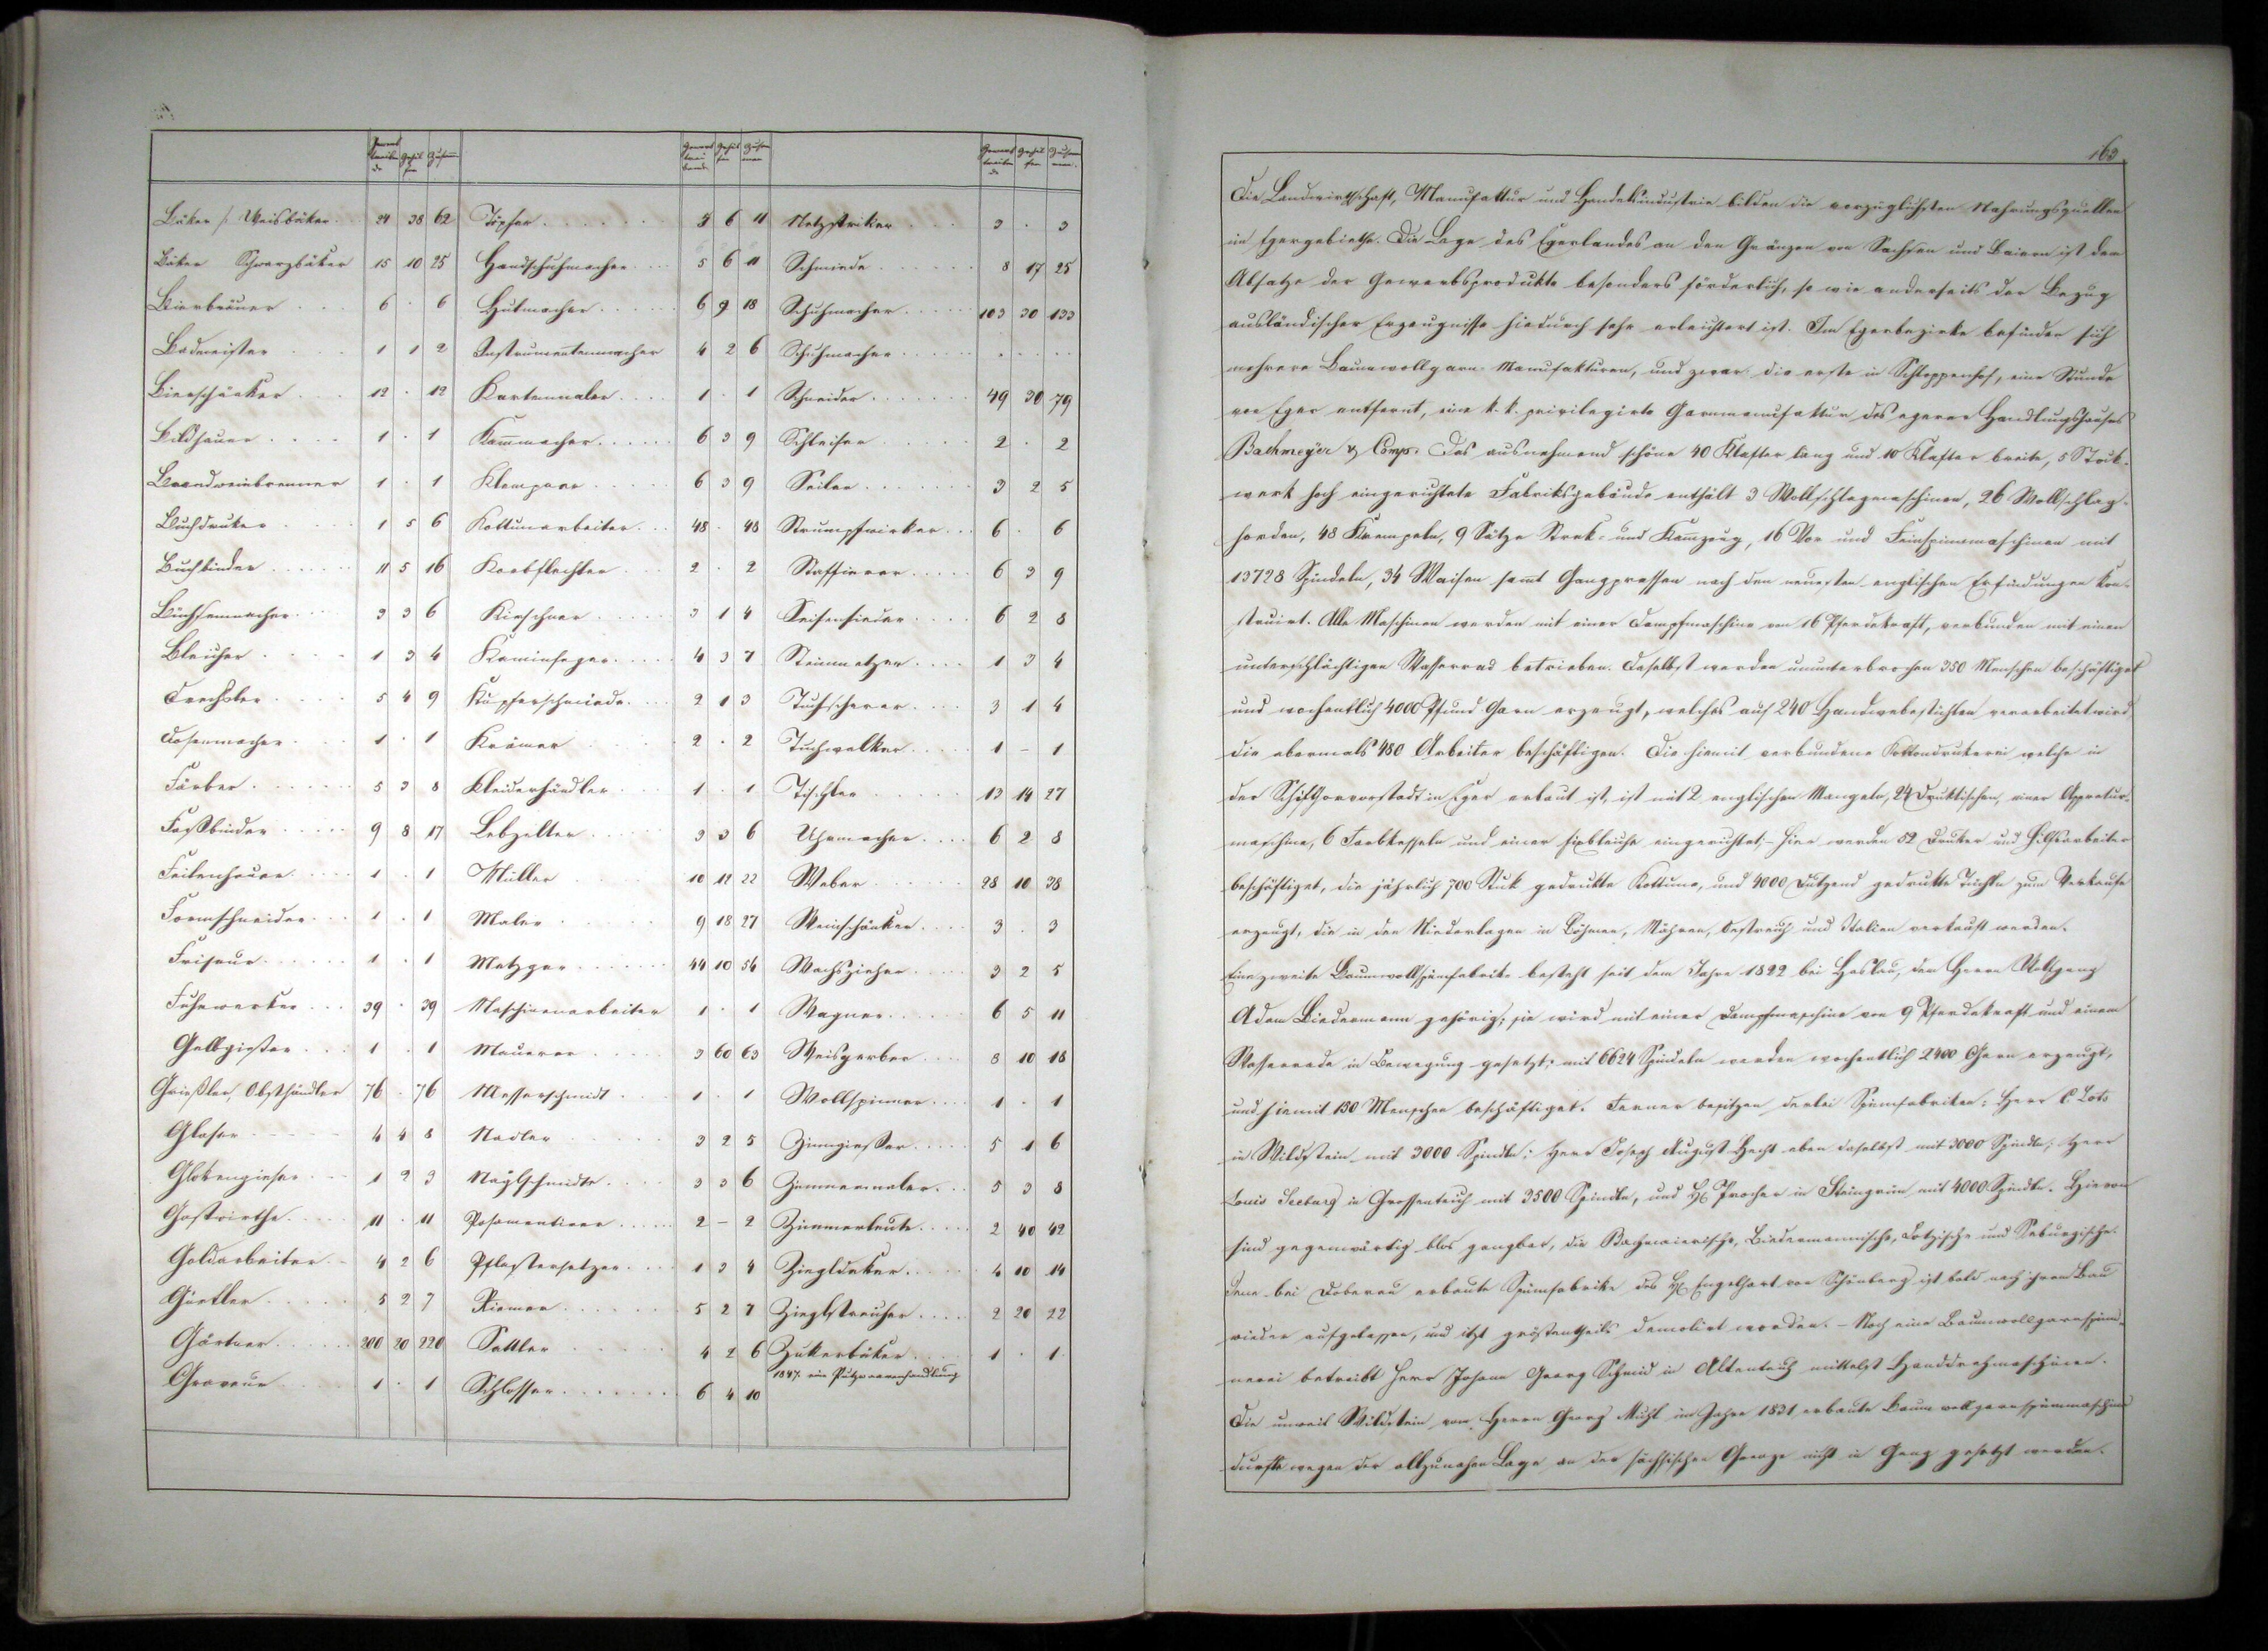 Gewerbtreibende Gehilfen Zusammen Gewerbtreibende Gehilfen Zusammen Gewerbtreibende Gehilfen Zusammen
Bäker /: Weisbäker 24 38 62 Töpfer 6 11 Netzstriker 3 . 3
Bäker Schwarzbäker 15 10 25 Handschuhmacher 5 6 11 Schmiede 8 17 25
Bierbräuer 6 . 6 Hutmacher 6 18 Schuhmacher 103 30 133
Bademeister 1 1 2 Instrumentenmacher 4 2 6 Schuhmacher . . . .
Bierschänker 12 . 12 Kartenmaler 1 . 1 Schneider 49 30 79
Bildhauer 1 . 1 Kam̄macher 6 3 9 Schleifer 2 . 2
Brandweinbrenner 1 . 1 Klempner 6 3 9 Seiler 3 2 5
Buchdruker 1 5 6 Kottunarbeiter 48 . 48 Strumpfwirker 6 . 6
Buchbinder 11 5 16 Korbflechter 2 . 2 Staffierer 6 3 9
Büchsenmacher 3 3 6 Kirschner 3 1 4 Seifensieder 6 2 8
Bleicher 1 3 4 Kaminfeger 4 3 7 Steinmetzer 1 3 4
Drechsler 5 4 9 Kupferschmiede 2 1 3 Tuchscherer 3 1 4
Dosenmacher 1 . 1 Krämer 2 . 2 Tuchwalker 1 – 1
Färber 5 3 8 Kleiderhändler 1 . 1 Tischler 13 14 27
Faßbinder 9 8 17 Lebzelter 3 3 6 Uhrmacher 6 2 8
Feilenhauer 1 . 1 Müller 10 12 22 Weber 28 10 38
Formschneider 1 . 1 Maler 9 18 27 Weinschänker 3 . 3
Friseur 1 . 1 Metzger 44 10 54 Wachszieher 3 2 5
Fuhrwerker 39 . 39 Maschinenarbeiter 1 . 1 Wagner 6 5 11
Gelbgießer 1 . 1 Maurer 3 60 63 Weisgerber 8 10 18
Grießler, Obsthändler 76 . 76 Messerschmidt 1 . 1 Wollspinner 1 . 1
Glaser 4 4 8 Nadler 3 2 5 Zinngießer 5 1 6
Glokengieser 1 2 3 Naglschmidte 3 3 6 Zimmermaler 5 3 8
Gastwirthe 11 . 11 Posamentirer 2 – 2 Zimmerleute 2 40 42
Goldarbeiter 4 2 6 Pflastersetzer 1 3 4 Ziegldeker 4 10 14
Gürtler 5 2 7 Riemer 5 2 7 Zieglstreicher 2 20 22
Gärtner 200 20 220 Sattler 4 2 6 Zukerbäker 1 . 1
Graveur 1 . 1 Schlosser 6 4 10 1847. eine Putzwaarenhandlung
163
Die Landwirthschaft, Manufaktur und Handelsindustrie bilden die vorzüglichsten Nahrungsquellen
im Egergebiethe. Die Lage des Egerlandes an den Gränzen von Sachsen und Baiern ist dem
Absatze der Gewerbsprodukte besonders förderlich, so wie anderseits der Bezug
ausländischer Erzeugnisse hiedurch sehr erleichtert ist. Im Egerbezirke befinden sich
mehrere Baumwollgarn-Manufakturen, und zwar die erste in Schloppenhof, eine Stunde
von Eger entfernt, eine k. k. privilegirte Garnmanufaktur des egerer Handlungshauses
Bachmeyer & Comp. Das ausnehmend schöne 40 Klafter lang und 10 Klafter breite, 5 Stok-
werk hoch eingerichtete Fabriksgebäude enthält 3 Wollschlagmaschinen, 26 Wollschlag-
horden, 48 Krempeln, 9 Sätze Strek- und Kam̄zeug, 16 Vor und Feinspinnmaschinen mit
13728 Spindeln, 34 Waifen sam̄t Gangpressen nach den neuesten englischen Erfindungen kon-
struirt. Alle Maschinen werden mit einer Dampfmaschine von 16 Pferdekraft, verbunden mit einem
unterschlächtigen Wasserrad betrieben. Daselbst werden ununterbrochen 350 Menschen beschäftiget
und wochentlich 4000 Pfund Garn erzeugt, welches auf 240 Handwebestühlen verarbeitet wird
die abermals 480 Arbeiter beschäftigen. Die hiemit verbundene Kottondrukerei welche in
der Schiftthorvorstadt in Eger erbaut ist, ist mit 2 englischen Mangeln, 24 Druktischen, einer Appretur-
maschine, 6 Farbkesseln und einer fixbleiche eingerichtet; – hier werden 52 Druker und Hilfsarbeiter
beschäftiget, die jährlich 700 Stuk gedrukte Kottune, und 4000 Dutzend gedrukte Tüchln zum Verkaufe
erzeugt, die in den Niederlagen in Böhmen, Mähren, Oestreich und Italien verkauft werden.
Eine zweite Baumwollspinnfabrike besteht seit dem Jahre 1822 bei Haslau, dem Herrn Wolfgang
Adam Biedermann gehörig; sie wird mit einer Dampfmaschine von 9 Pferdekraft und einem
Wasserrade in Bewegung gesetzt; mit 6624 Spindeln werden wochentlich 2400 Garn erzeugt,
und hiemit 130 Menschen beschäftiget. Ferner besitzen derlei Spinnfabriken: Herr C Lots
in Wildstein mit 3000 Spindln: Herr Joseph August Hecht eben daselbst mit 3000 Spindln; Herr
Louis Seeburg in Grossenteich mit 3500 Spindln, und H. Procher in Steingrün mit 4000 Spindln. Hievon
sind gegenwärtig blos gangbar, die Bachmaierische, Biedermannische, Lotzische und Seburgische.
Jene bei Doberau erbaute Spinnfabrike des H. Engelhart von Schönberg ist bald nach ihrem Bau
wieder aufgelassen, und itzt größtentheils demolirt worden. – Noch eine Baumwollgarnspinn-
nerei betreibt Herr Johann Georg Schmid in Altenteich mittelst Handdrehmaschinen.
Die unweit Wildstein vom Herrn Georg Michl im Jahre 1831 erbaute Baumwollgarnspinnmaschine
durfte wegen der allzunahen Lage an der sächsischen Grenze nicht in Gang gesetzt werden.